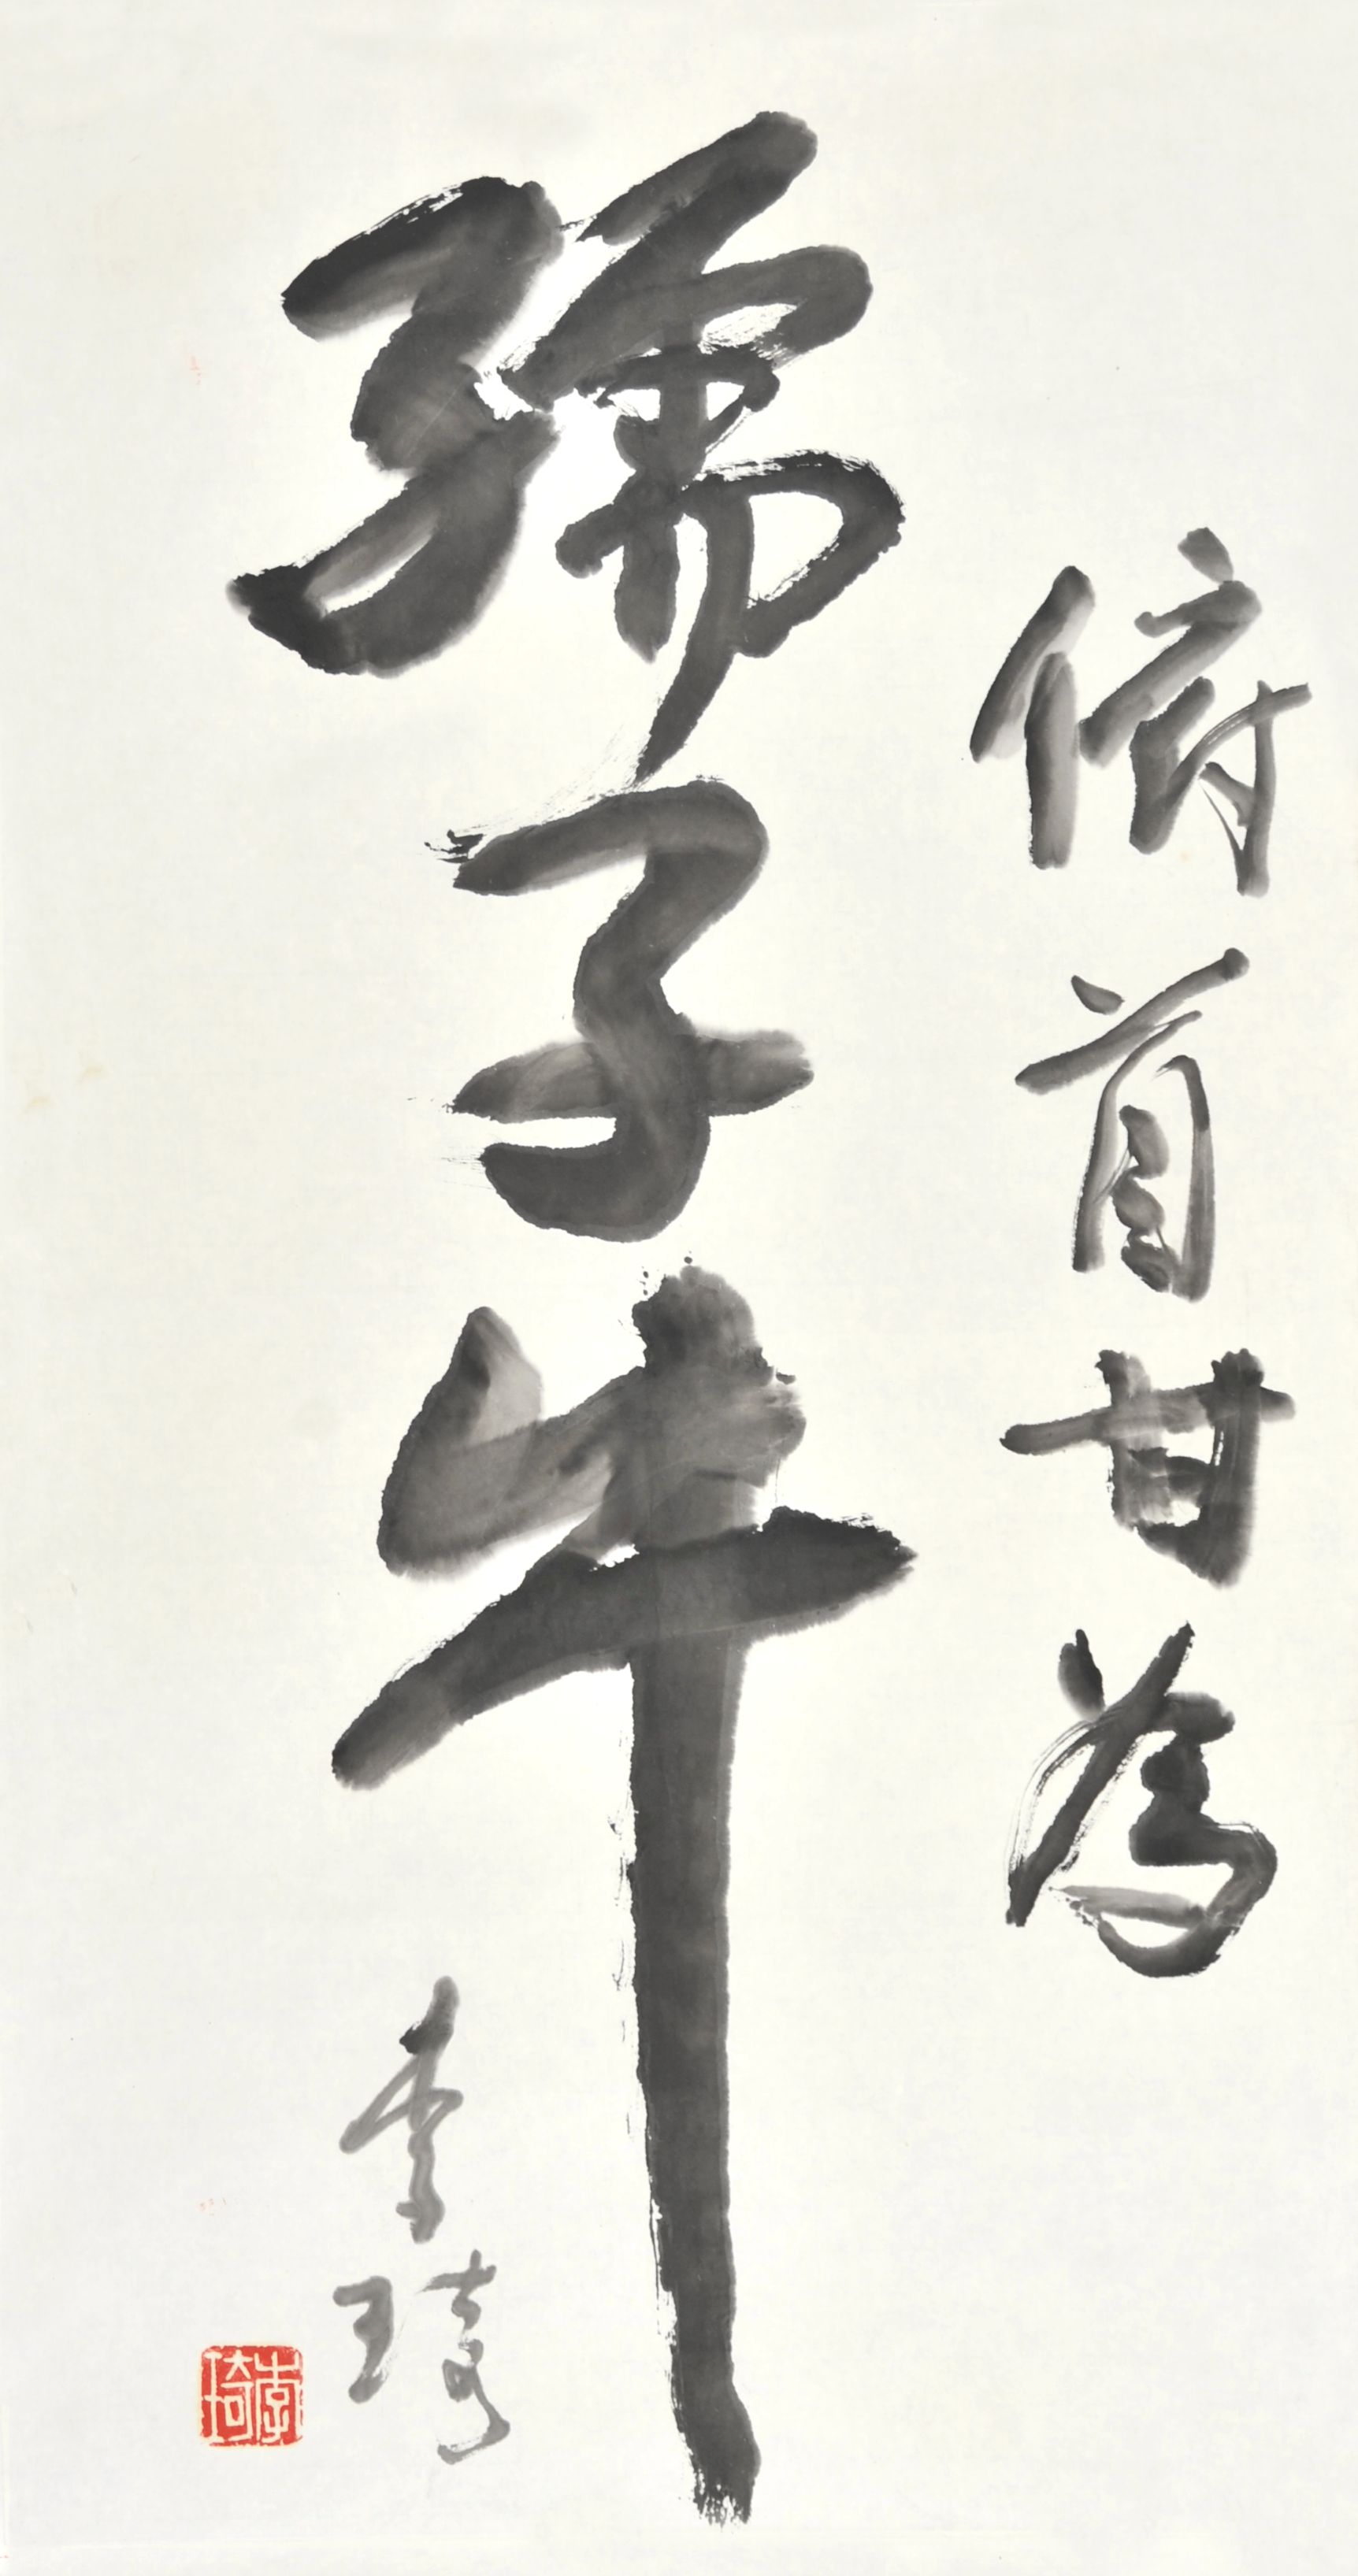 俯首甘為
孺子牛
李琦
李琦